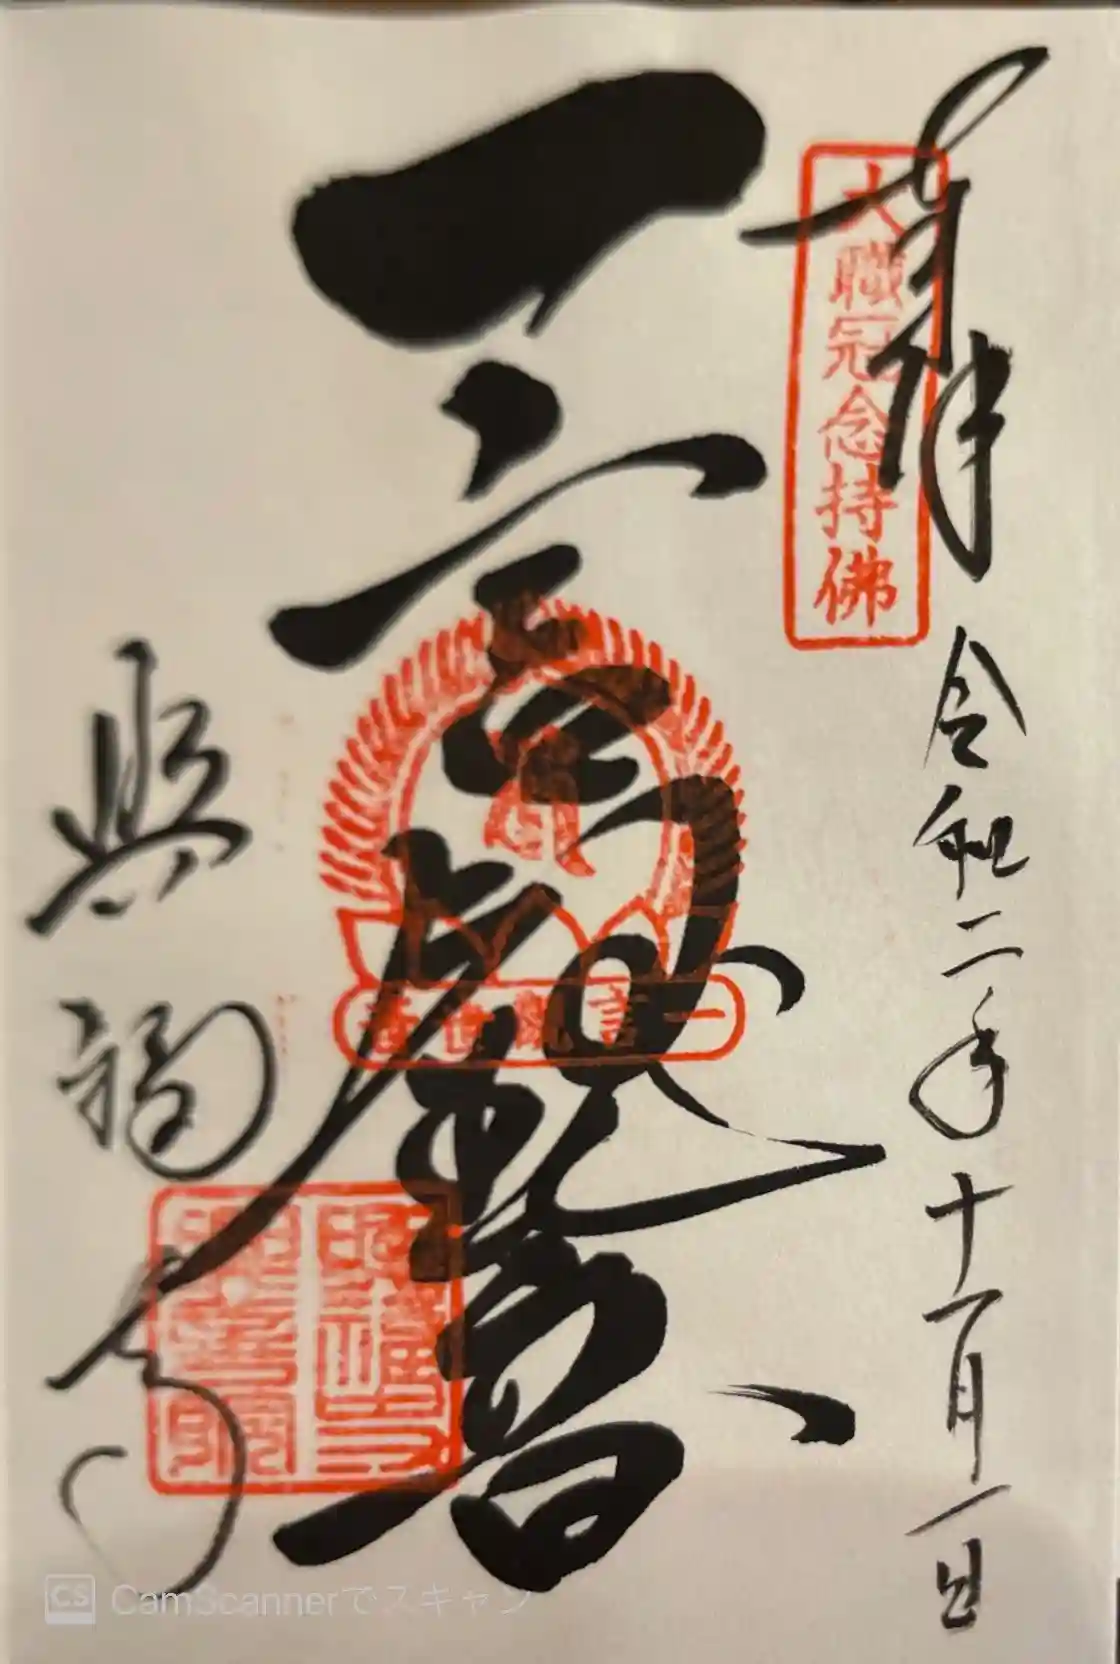 奉拝
大職冠念持佛
令和二年十一月一日
一言観音
一言観世音
興福寺
CS CamScannerでスキャン